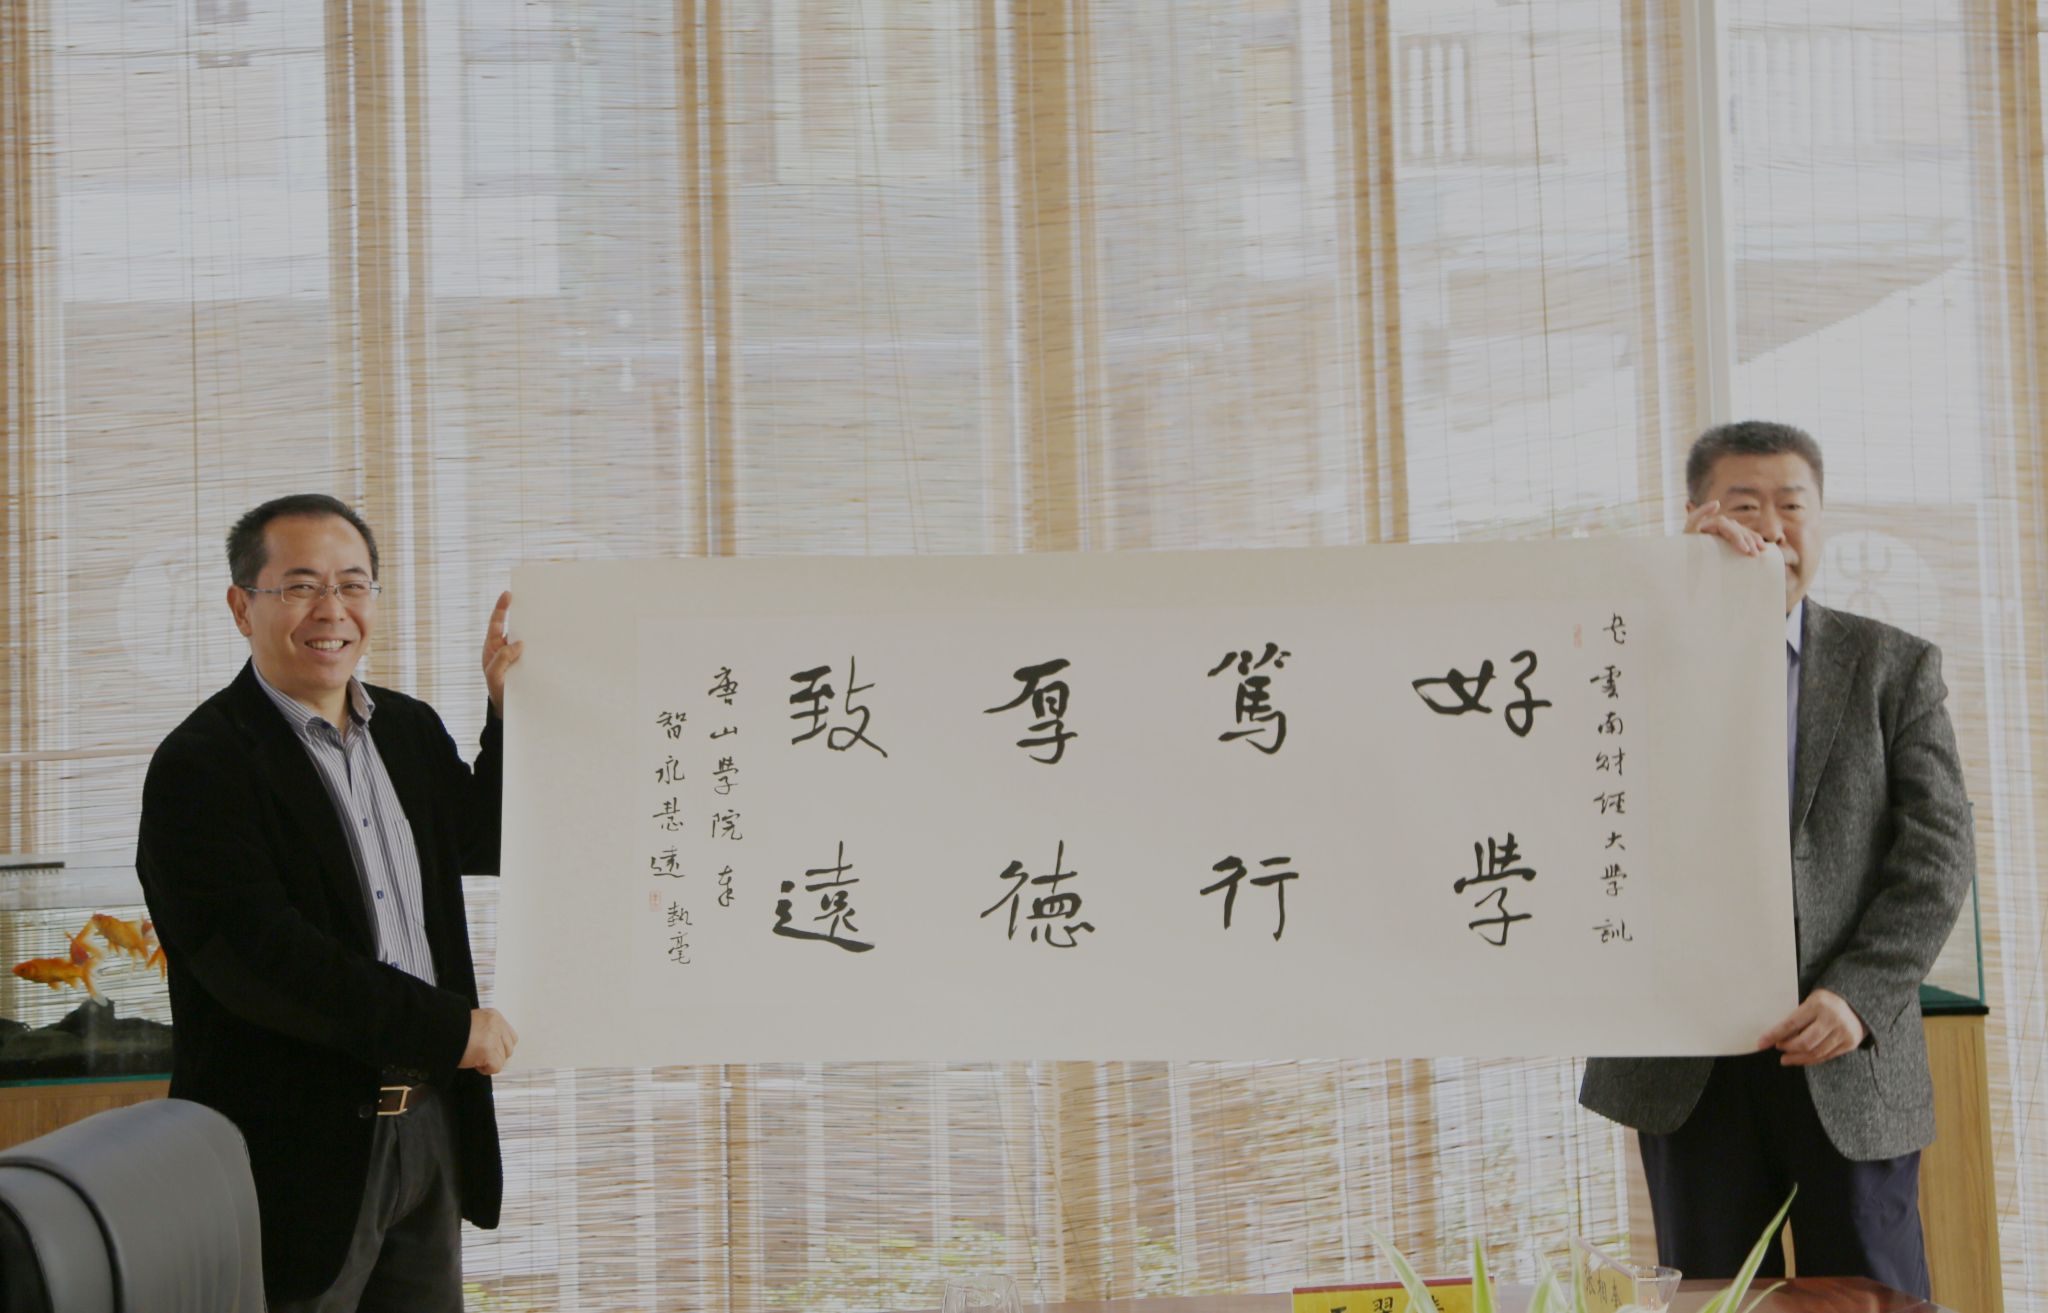 書雲南財經大學訓
好學
篤行
厚德
致遠
唐山學院奉
智永慧遠 執毫